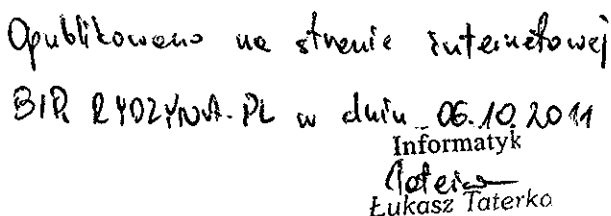 Opublikowano na stronie internetowej
BIP. RYDZYNA.PL w dniu 06.10.2011
Informatyk
Łukasz Taterka